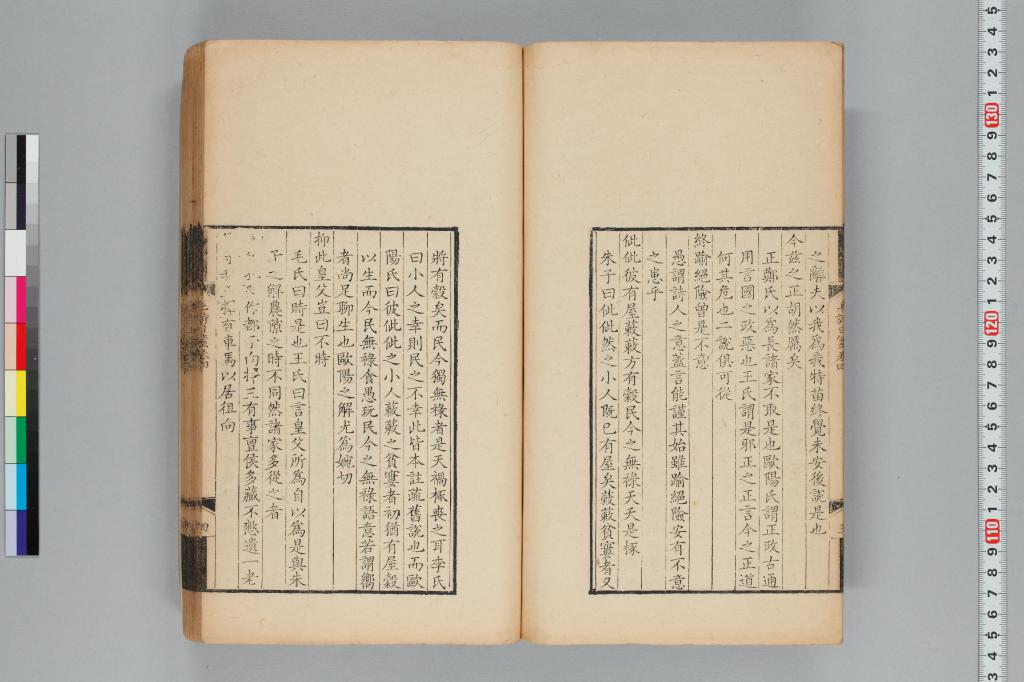 之辭夫以我爲我特苗終覺未安後說是也
今兹之正胡然厲矣
正鄭氏以爲長諸家不取是也歐陽氏謂正政古通
用言國之政惡也王氏謂是邪正之正言今之正道
何其危也二說俱可從
終踰絕險曾是不意
愚謂詩人之意蓋言能謹其始雖踰絕險安有不意
之患乎
佌佌彼有屋蔌蔌方有穀民今之無祿天夭是椓
朱子曰佌佌然之小人既已有屋矣蔌蔌貧窶者又
將有穀矣而民今獨無祿者是天禍椓喪之耳李氏
曰小人之幸則民之不幸此皆本註疏舊說也而歐
陽氏曰彼佌佌之小人蔌蔌之貧窶者初猶有屋穀
以生而今民無祿食愚玩民今之無祿語意若謂嚮
者尚足聊生也歐陽之解尤爲婉切
抑此皇父豈曰不時
毛氏曰時是也王氏曰言皇父所爲自以爲是與朱
子之解農隙之時不同然諸家多從之者
作都于向擇三有事亶侯多藏不憖遺一老
有車馬以居徂向
四